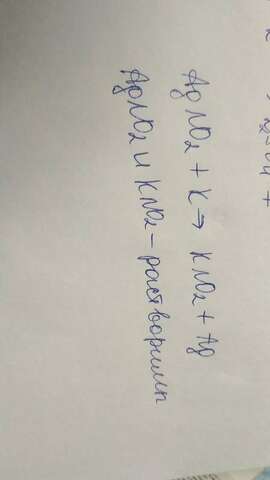 AgNO₂ + K → KNO₂ + Ag
AgNO₂ и KNO₂ - растворимы